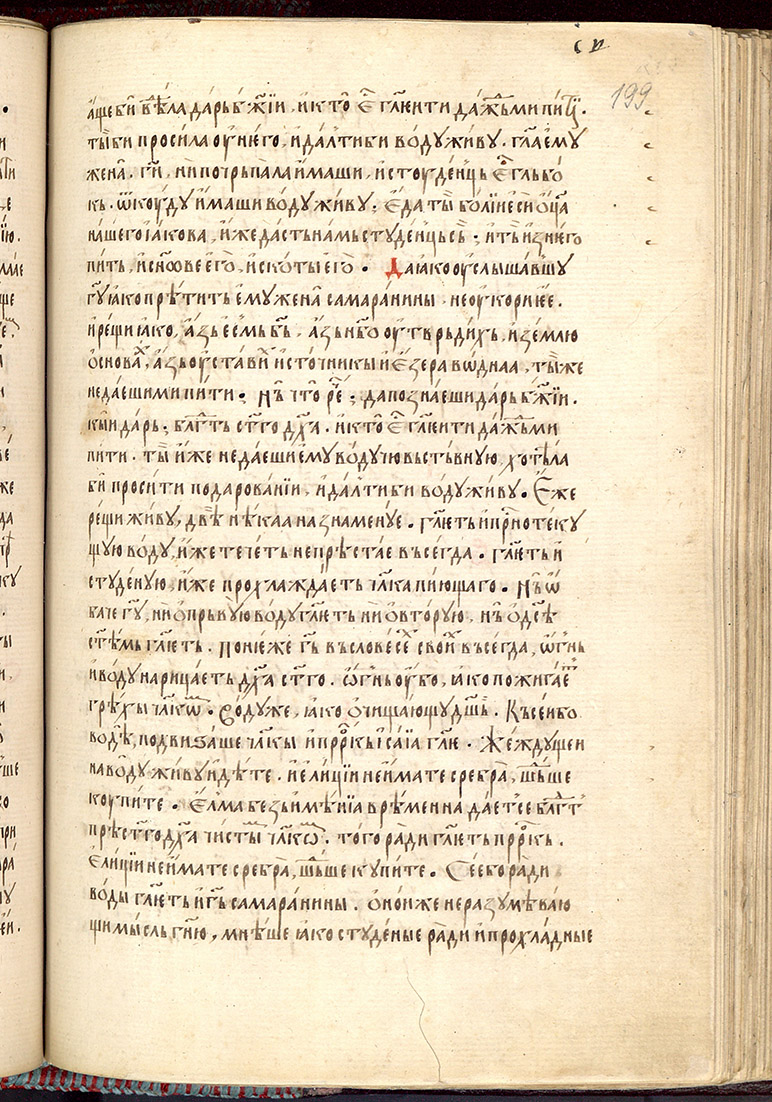 си
199
а҆ще бы̀ вѣ́ла да́рь бж҃їи, и҆ кто̀ є҆́с гл҃еи ти да́ждь ми пи́ти.
ты̀ би просила оу҆ не́го, и҆ да́лъ ти би во́дꙋ жи́вꙋ. гл҃а є҆мꙋ
жена̀. гѝ, ни почръпала и҆́маши, и҆ стꙋде́нцъ є҆́с глъбо́
къ. ѿкꙋ́дꙋ и҆́маши во́дꙋ жи́вꙋ; є҆да̀ ты̀ бо́лїи есѝ ѻ҆ц҃а
на́шего і҆а́кова, и҆́же да́сть на́мь стꙋде́нцьсъ; и҆ тъ и҆з не́го
пи́тъ, и҆ сн҃ове его̀, и҆ ско́ты его̀. Да ꙗ҆ко оу҆слы́шавшꙋ
гꙋ҃ ꙗ҆ко прѣ́тить є҆мꙋ жена̀ самара́нины. не оу҆кори ю҆̀ е.
и҆ ре́щи ꙗ҆́ко, а҆́зь е҆́смь бъ҃. а҆́зь нб҃о оу҆твръди́хъ, и҆ зе́млю
ѻ҆снова́х, а҆́зь оу҆ста́вих и҆сто́чникы и҆ є҆́зера вѡ́днаа, ты́ же
не да́еши ми пи́ти. Нъ̀ что̀ ре́ч; да позна́еши да́рь бж҃їи.
кы́и да́рь; блг҃ть ст҃го дх҃а. и҆ кто̀ є҆́с гл҃еи ти да́ждь ми
пи́ти. ты̀ и҆́же не да́еши є҆мꙋ во́дꙋ чю́вьствънꙋю, хотѣ́ла
бы̀ проси́ти подарова́нїи, и҆ да́лъ ти би во́дꙋ жи́вꙋ. Є҆́же
ре́щи жи́вꙋ, двѣ̀ нѣ́каа назнаменꙋ́е. гл҃еть и҆ приснотекꙋ́
щꙋю во́дꙋ, и҆́же тече́ть непрѣста́е въсегда. гл҃еть и҆
стꙋде́нꙋю, и҆́же прохлажда́еть чл҃ка пию́щаго. Нъ̀ ѡ҆
ба́че гꙋ҃, ни ѻ҆ пръвꙋ́ю во́дꙋ гл҃еть ни ѻ҆ вто́рꙋю, нъ̀ ѻ҆ дс҃ѣ
ст҃ѣмь гл҃еть. Поне́же гь҃ въ словесе́х свои́х въсегда, ѻ҆́гнь
и҆ во́дꙋ нарица́еть дх҃а ст҃го. Ѻ҆́гнь оу҆́бо, ꙗ҆ко пожига́ет
грѣхы̀ чл҃кѡм. во́дꙋ же, ꙗ҆́ко ѻ҆чища́ющꙋ дш҃ѣ. Къ се́и бо
водѣ̀, подвиза́ше чл҃кы и҆ прⷪ҇ркъ і҆са́їа гл҃е. Же́ждꙋщеи
на во́дꙋ жи́вꙋ и҆дѣ́те. и҆ ели́цїи не и҆́мате сребра̀, шъ́дше
кꙋпи́те. Є҆лма́ безь и҆мѣ́нїа врѣ́менна дае́т се блг҃ть
прѣст҃го дх҃а чисты́м чл҃кѡм. того ра́ди гл҃еть прⷪ҇ркъ.
є҆ли́цїи не и҆́мате сребра̀, шъ́дше кꙋпи́те. Се́е бо ра́ди
во́ды гл҃еть и҆ гь҃ самара́нины. ѻ҆но́и же не разꙋмѣ́ваю
щи мы́сль гн҃ю, мнѣ́ше ꙗ҆́ко стꙋде́ные ра́ди и҆ прохла́дные